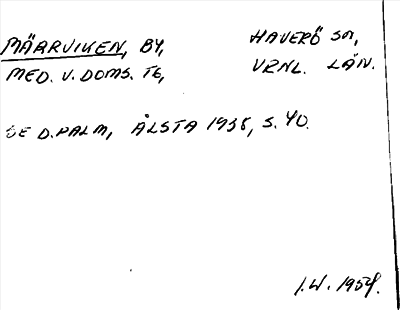 MÄRRVIKEN, BY, HAVERÖ SN,
MED. V. DOMS. TG, VRNL. LÄN.
SE D. PALM, ÅLSTA 1938, S. 40.
I.W. 1954.